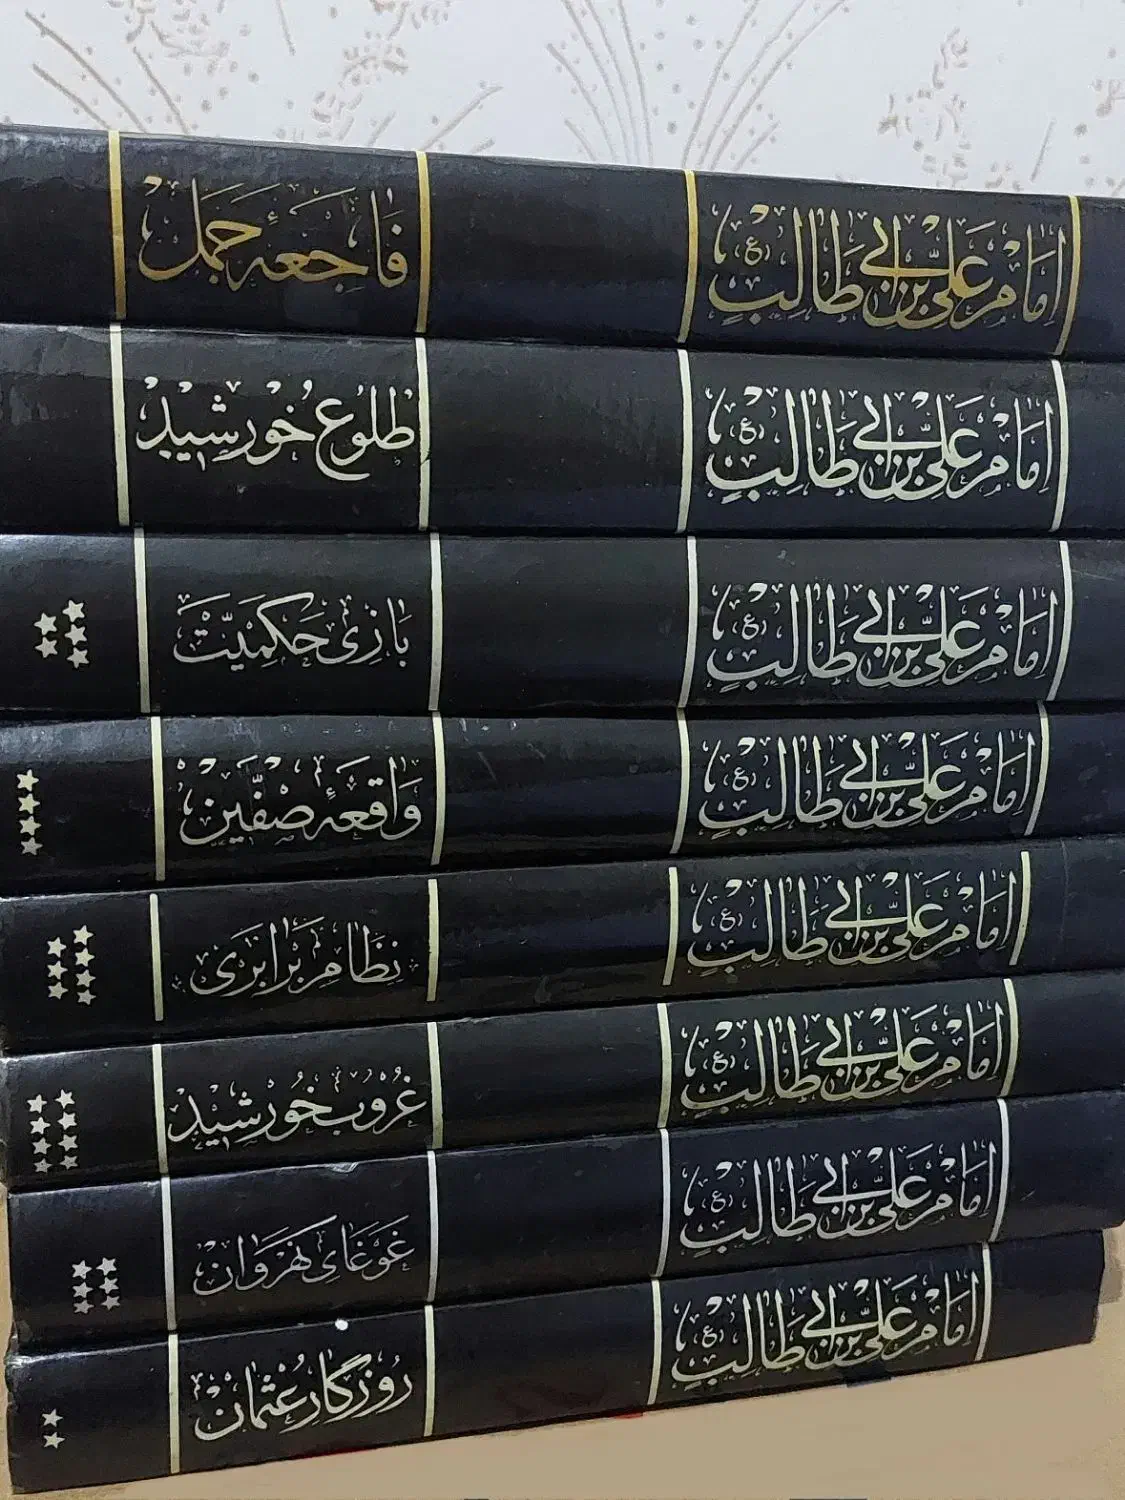 امام علی بن ابی طالب (ع)
فاجعهٔ جمل
امام علی بن ابی طالب (ع)
طلوع خورشید
امام علی بن ابی طالب (ع)
بازی حکمیت
امام علی بن ابی طالب (ع)
واقعهٔ صفین
امام علی بن ابی طالب (ع)
نظام برابری
امام علی بن ابی طالب (ع)
غروب خورشید
امام علی بن ابی طالب (ع)
غوغای نهروان
امام علی بن ابی طالب (ع)
روزگار عثمان